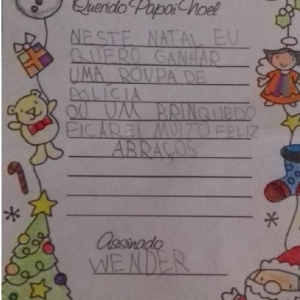 Querido Papai Noel
NESTE NATAL EU
QUERO GANHAR
UMA ROUPA DE
POLÍCIA
OU UM BRINQUEDO
FICAREI MUITO FELIZ
ABRAÇOS
Assinado
WENDER